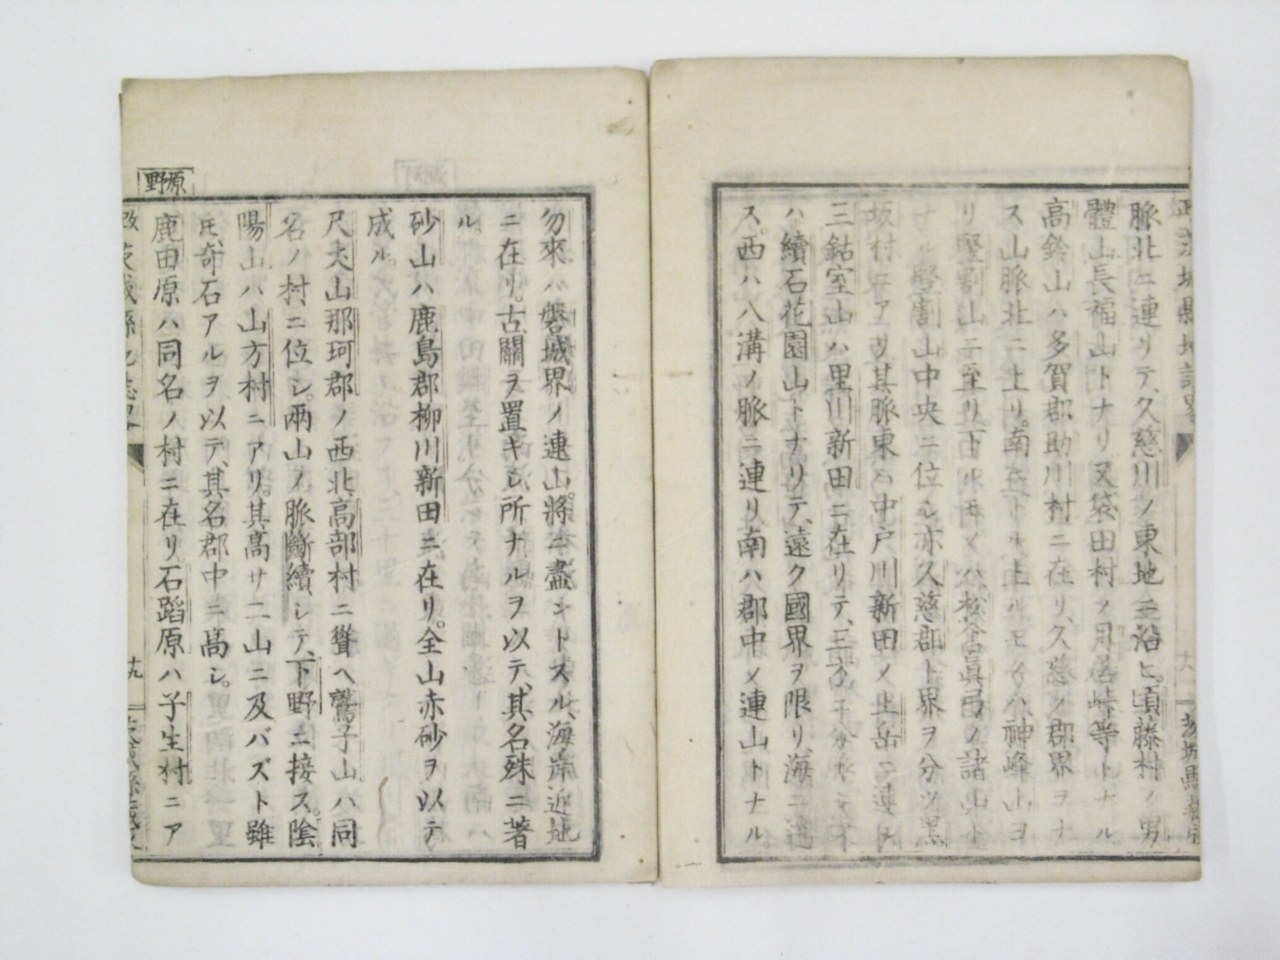 脈北ニ連リテ、久慈川ノ東地ニ沿ヒ。頃藤村ノ男
體山長福山トナリ又袋田村ノ月居峠等トナル
高鈴山ハ多賀郡助川村ニ在リ、久慈ノ郡界ヲナ
ス山脈北ニ上リ。南ニ下ル上ルモノハ神峰山ヨ
リ竪割山ニ至リ、下ルモノハ松倉眞弓ノ諸山ト
ナル竪割山中央ニ位シ亦久慈郡ト界ヲ分ツ黒
坂村ニアリ其脈東ハ中戸川新田ノ土岳ニ連ル
三鈷室山ハ里川新田ニ在リテ、三方ニ分レ
ハ續石花園山トナリテ、遠ク國界ヲ限リ、海ニ
ス。西ハ八溝ノ脈ニ連リ南ハ郡中ノ連山トナル
勿來ハ磐城界ノ連山。將ニ盡ントスル、海岸近地
ニ在リ。古、關ヲ置キシ所ナルヲ以テ、其名殊ニ著
ル
砂山ハ鹿島郡柳川新田ニ在リ。全山赤砂ヲ以テ
成ル。
尺丈山那珂郡ノ西北、高部村ニ聳ヘ鷲子山ハ同
名ノ村ニ位シ。兩山ノ脈斷續シテ、下野ニ接ス。陰
陽山ハ山方村ニアリ。其高サ二山ニ及バズト雖
氏、奇石アルヲ以テ、其名郡中ニ高シ。
原野
鹿田原ハ同名ノ村ニ在リ石蹈原ハ子生村ニア
茨城縣地誌畧
十九